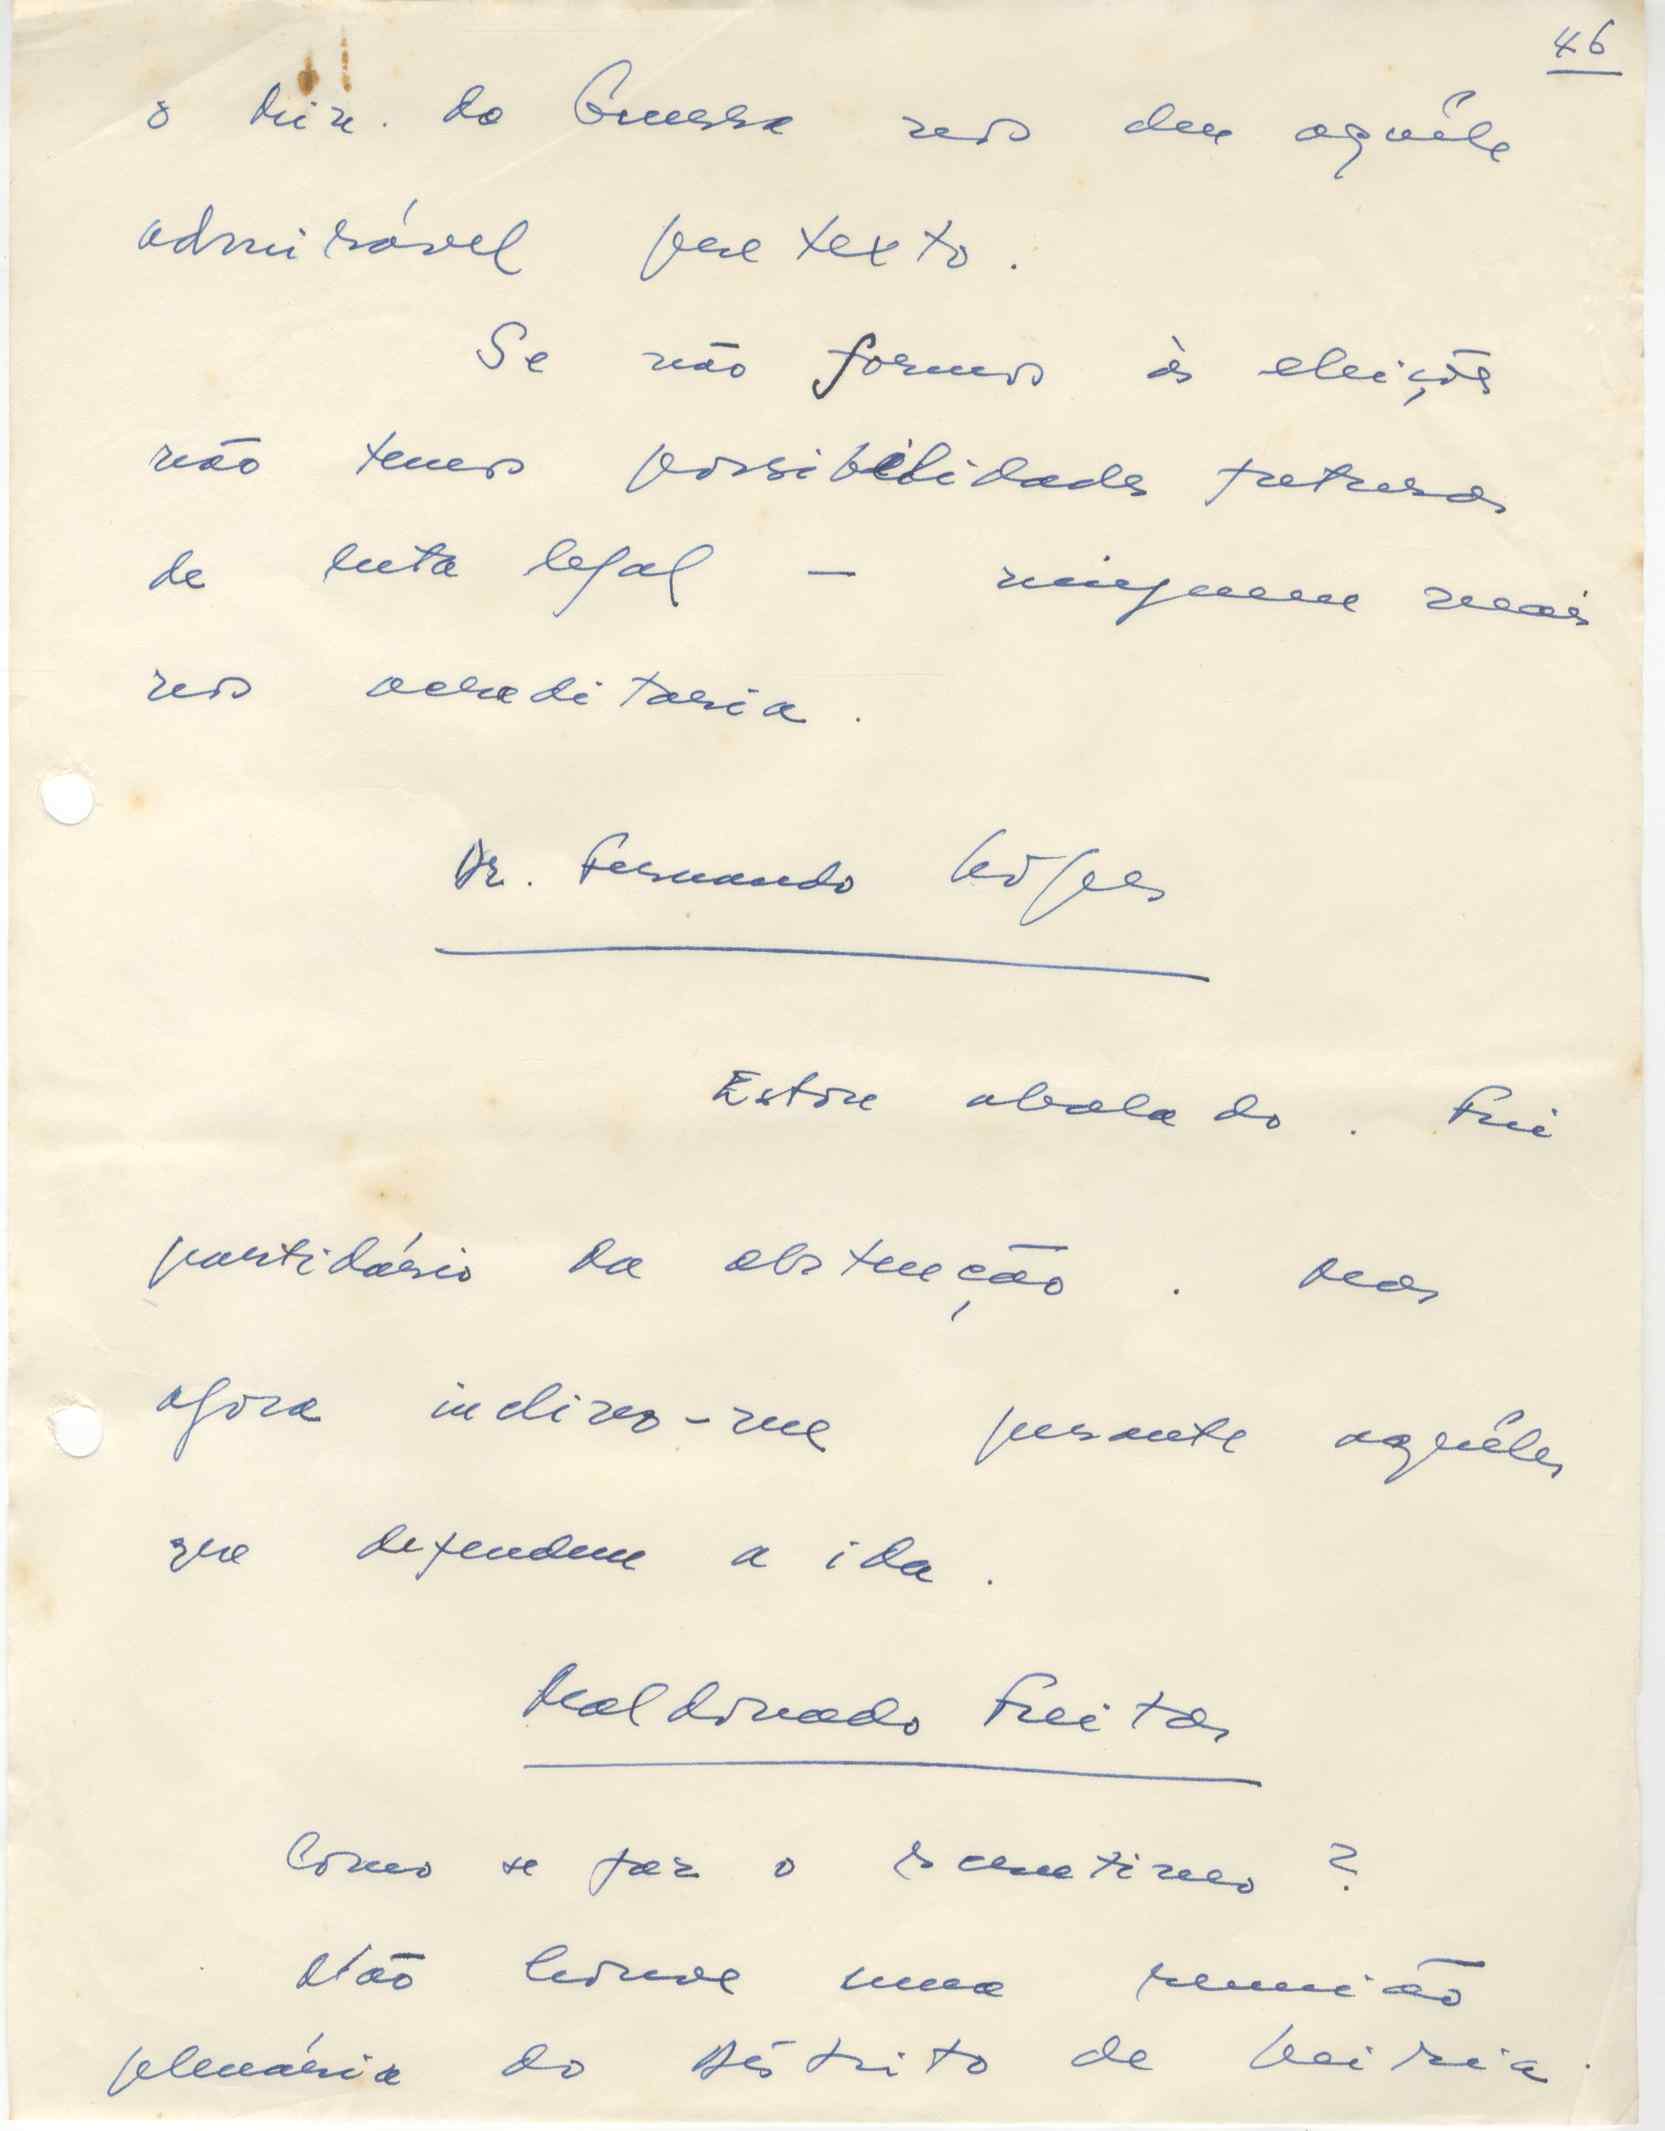 46
o Min. da Guerra nos deu aquêle
admirável pretexto.
Se não formos às eleições
não temos possibilidades futuras
de luta legal — ninguem mais
nos acreditaria.
Dr. Fernando Lopes
Estou abalado. Fui
partidário da abstenção. Mas
agora inclino-me perante aquêles
que defendem a ida.
Maldonado Freitas
Como se faz o escrutineo?
Não houve uma reunião
plenária do Distrito de Leiria.